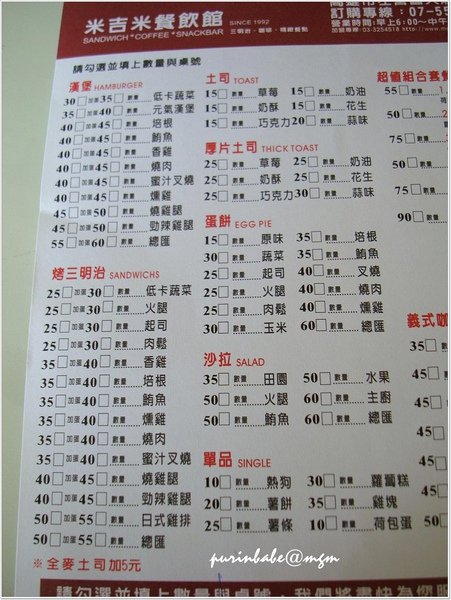 米吉米餐飲館 SINCE 1992
SANDWICH*COFFEE*SNACKBAR 三明治‧咖啡‧精緻餐點
訂購專線：07-55
營業時間:早上6:00~中午
加盟專線:03-3254518 http://www.m
請勾選並填上數量與桌號
漢堡 HAMBURGER
30□加蛋35□數量 低卡蔬菜
35□加蛋40□數量 元氣漢堡
40□加蛋45□數量 培根
40□加蛋45□數量 鮪魚
40□加蛋45□數量 香雞
40□加蛋45□數量 燒肉
40□加蛋45□數量 蜜汁叉燒
40□加蛋45□數量 燻雞
45□加蛋50□數量 燒雞腿
45□加蛋50□數量 勁辣雞腿
55□加蛋60□數量 總匯
烤三明治 SANDWICHS
25□加蛋30□數量 低卡蔬菜
25□加蛋30□數量 火腿
25□加蛋30□數量 起司
25□加蛋30□數量 肉鬆
35□加蛋40□數量 香雞
35□加蛋40□數量 培根
35□加蛋40□數量 鮪魚
35□加蛋40□數量 燻雞
35□加蛋40□數量 燒肉
35□加蛋40□數量 蜜汁叉燒
40□加蛋45□數量 燒雞腿
40□加蛋45□數量 勁辣雞腿
50□加蛋55□數量 日式雞排
50□加蛋55□數量 總匯
※全麥土司加5元
土司 TOAST
15□數量 草莓 15□數量 奶油
15□數量 奶酥 15□數量 花生
15□數量 巧克力 20□數量 蒜味
厚片土司 THICK TOAST
25□數量 草莓 25□數量 奶油
25□數量 奶酥 25□數量 花生
25□數量 巧克力 30□數量 蒜味
蛋餅 EGG PIE
15□數量 原味 35□數量 培根
30□數量 蔬菜 35□數量 鮪魚
25□數量 起司 40□數量 叉燒
25□數量 火腿 40□數量 燒肉
25□數量 肉鬆 40□數量 燻雞
30□數量 玉米 60□數量 總匯
沙拉 SALAD
35□數量 田園 50□數量 水果
50□數量 火腿 60□數量 主廚
50□數量 鮪魚 60□數量 總匯
單品 SINGLE
10□數量 熱狗 30□數量 蘿蔔糕
20□數量 薯餅 35□數量 雞塊
25□數量 薯條 10□數量 荷包蛋
超值組合套餐
55□數量
50□數量
75□數量
50□數量
75□數量
90□數量
義式咖
45
45
45
45
50
50
purinbabe@mgm
請勾選並填上數量與桌號，我們將盡快為您服